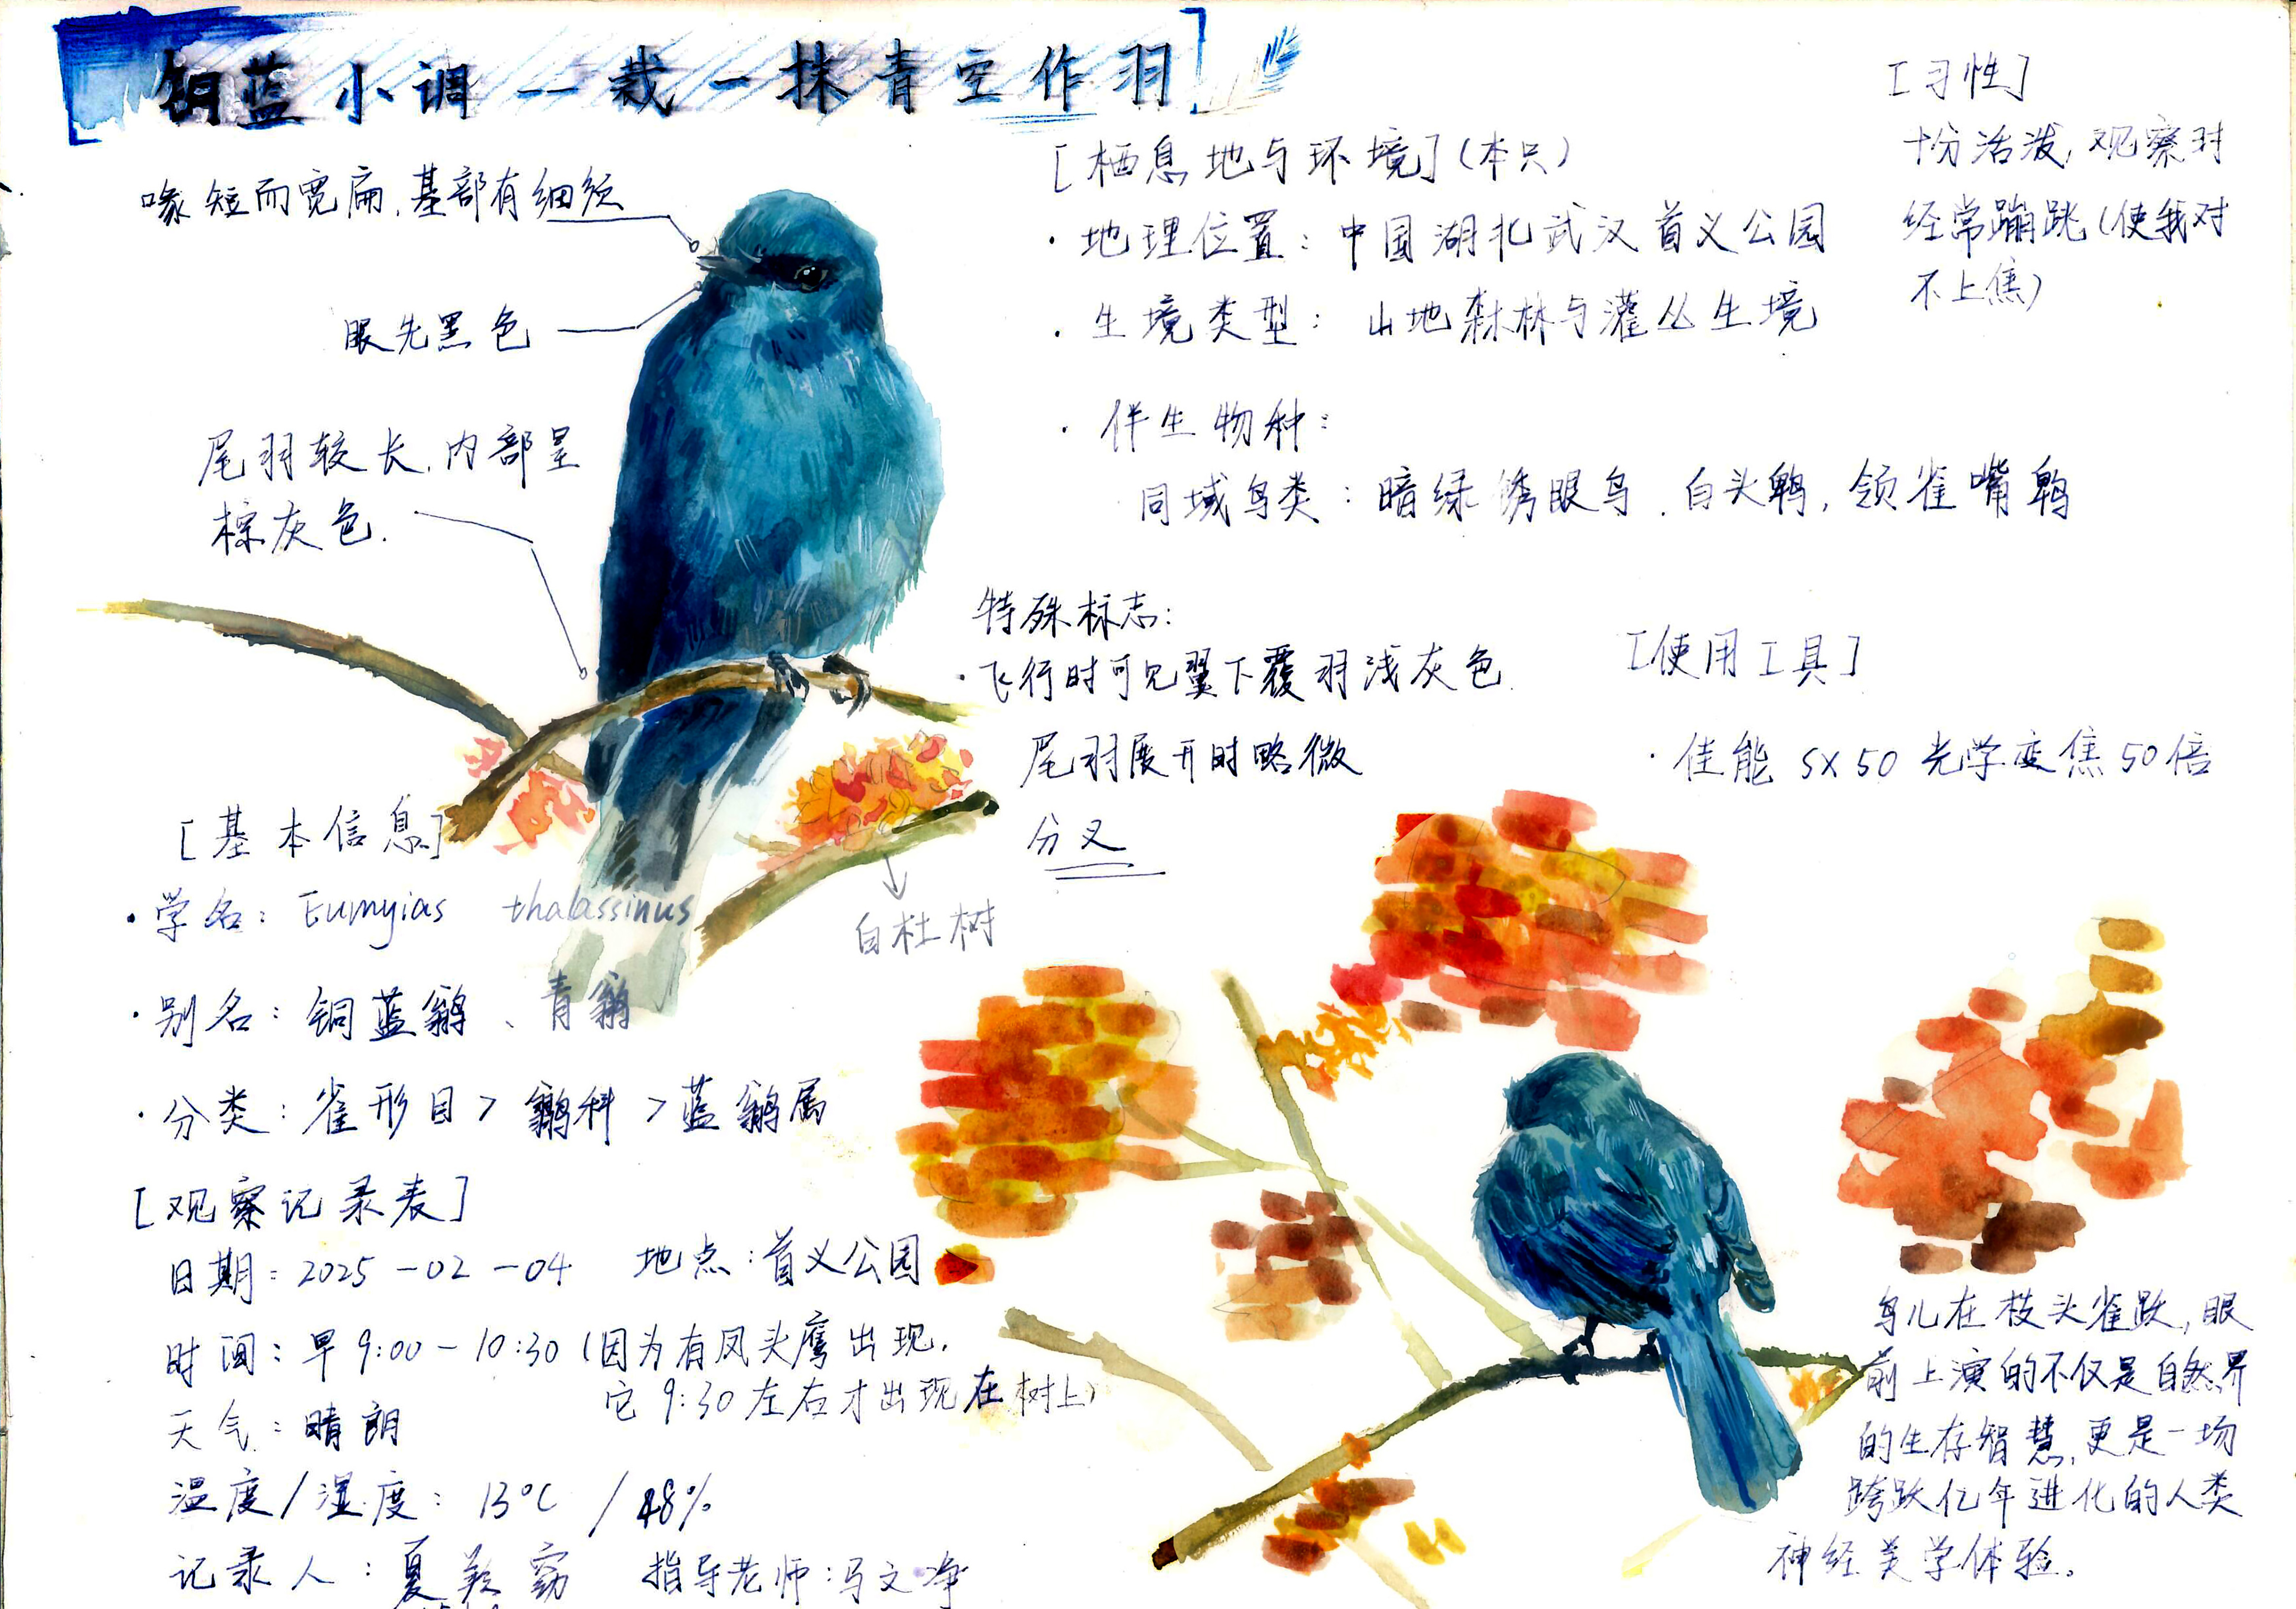 铜蓝小调——裁一抹青空作羽
喙短而宽扁,基部有细须
眼先黑色
尾羽较长,内部呈
棕灰色.
[栖息地与环境](本只)
·地理位置:中国湖北武汉首义公园
·生境类型:山地森林与灌丛生境
·伴生物种:
同域鸟类:暗绿绣眼鸟、白头鹎,领雀嘴鹎
[习性]
十分活泼,观察时
经常蹦跳(使我对
不上焦)
特殊标志:
·飞行时可见翼下覆羽浅灰色
尾羽展开时略微
分叉
[使用工具]
·佳能 SX50 光学变焦50倍
白杜树
[基本信息]
·学名:Eumyias thalassinus
·别名:铜蓝鹟、青鹟
·分类:雀形目>鹟科>蓝鹟属
[观察记录表]
日期:2025-02-04 地点:首义公园
时间:早9:00-10:30(因为有凤头鹰出现,
它9:30左右才出现在树上)
天气:晴朗
温度/湿度:13°C /48%
记录人:夏 指导老师:马文净
鸟儿在枝头雀跃,眼
前上演的不仅是自然界
的生存智慧,更是一场
跨跃亿年进化的人类
神经美学体验。